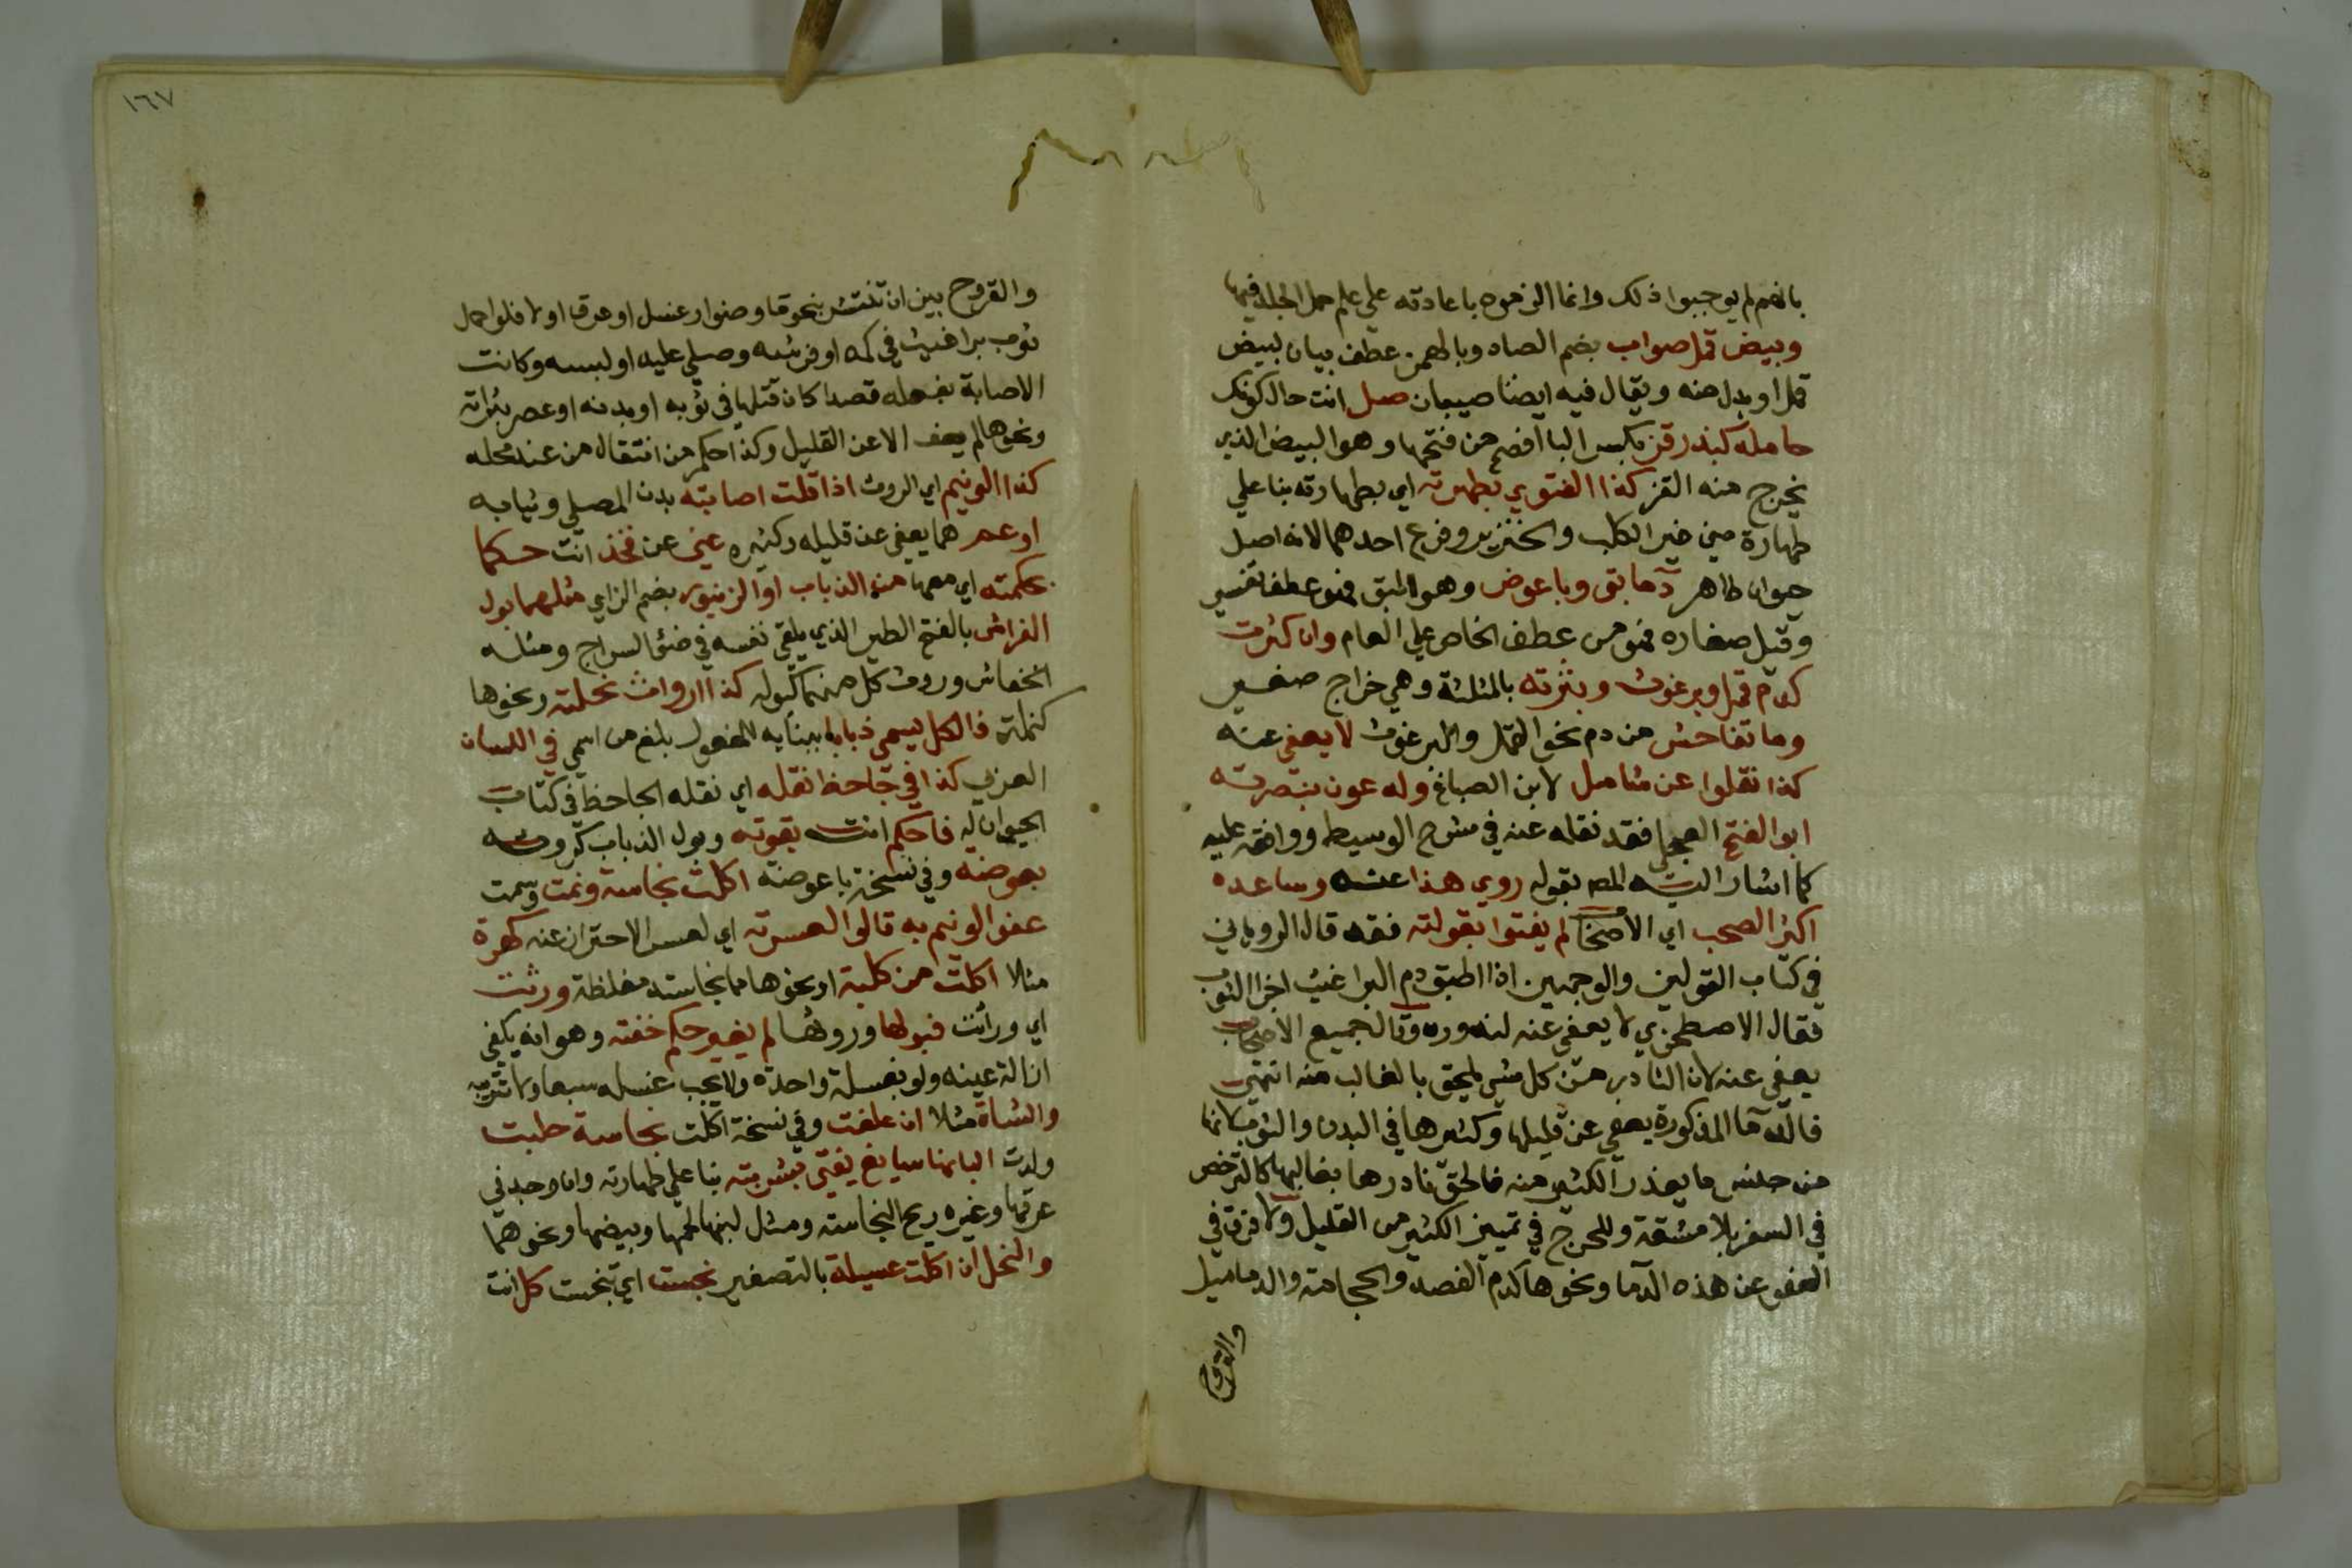 بانهم لم يوجبوا ذلك وانما الزموه باعادته علي علم حمل الجلد فيها
وبيض قمل صواب بضم الصاد وبالهمز عطف بيان لبيض
قمل او بدل منه ويقال فيه ايضا صيبان صل انت حال كونك
حامله كبذر قز بكسر البا افصح من فتحها وهو البيض الذي
يخرج منه القز كذا الفتوي بطهرته اي بطهارته بنا علي
طهارة مني غير الكلب والخنزير وفرع احدهما لانه اصل
حيوان طاهر دما بق وباعوض وهو البق فهو عطف تفسير
وقيل صغاره فهو من عطف الخاص علي العام وان كثرت
كدم قمل او برغوث وبثرته بالمثلثة وهي خراج صغير
وما تفاحش من دم نحو القمل والبرغوث لا يعفي عنه
كذا نقلوا عن شامل لابن الصباغ وله عون بنصرته
ابو الفتح العجلي فقد نقله عنه في شرح الوسيط ووافقه عليه
كما اشار اليه المص بقوله روي هذا عنه وساعده
اكثر الصحب اي الاصحاب لم يفتوا بقولته فقه قال الروياني
في كتاب القولين والوجهين اذا طبق دم البراغيث اخر الثوب
فقال الاصطخري لا يعفي عنه لندوره وقال جميع الاصحاب
يعفي عنه لان النادر من كل شي ملحق بالغالب منه انتهي
فالدما المذكورة يعفي عن قليلها وكثيرها في البدن والثوب لانها
من جنس ما يعذر الكثير منه فالحق نادرها بغالبها كالترخص
في السفر بلا مشقة وللحرج في تمييز الكثير من القليل ولا فرق في
العفو عن هذه الدما ونحوها كدم الفصد والحجامة والدماميل
والقروح
١٦٧
والقروح بين ان تنتشر بنحو ماء وضوء او غسل او عرق او لا فلو حمل
ثوب براغيث في كمه او فرشه وصلي عليه او لبسه وكانت
الاصابة بفعله قصدا كان قتلها في ثوبه او بدنه او عصر بثراته
ونحوها لم يعف الا عن القليل وكذا حكم من انتقال من عند محله
كذا الونيم اي الروث اذا قلت اصابته بدن المصلي وثيابه
او عم هما يعفي عن قليله وكثيره عني عن فخذ انت حكما
بحكمته اي معها من الذباب او الزنبور بضم الزاي مثلهما بول
الفراش بالفتح الطير الذي يلقي نفسه في ضئ السراج ومثله
الخفاش وروث كل منهما كبوله كذا ارواث نحلته ونحوها
كنملة فالكل يسمي ذبابا ببنايه للمفعول بلغ من اسمي في اللسان
العربي كذا في جاحظ نقله اي نقله الجاحظ في كتاب
الحيوان له فاحكم انت بقوته وبول الذباب كروثه
بعوضه وفي نسخة باعوضة اكلت نجاسة ونمت وسمت
عفو الونيم به قالوا لعسرته اي لعسر الاحتراز عنه كهرة
مثلا اكلت من كلبة او نحوها مما نجاسته مغلظة ورثت
اي وراثت فبولها وروثها لم يغير حكم خفته وهو انه يكفي
ازالة عينه ولو بغسلة واحدة ولا يجب غسله سبعا ولا تتريبه
والشاة مثلا ان علفت وفي نسخة اكلت نجاسة حلبت
ولدت البانها سايغ يفتي بشربته بنا علي طهارته وان وجد في
عرقها وغيره ريح النجاسة ومثل لبنها لحمها وبيضها ونحوهما
والنحل ان اكلت عسيلة بالتصغير نجست اي تنجست كل انت